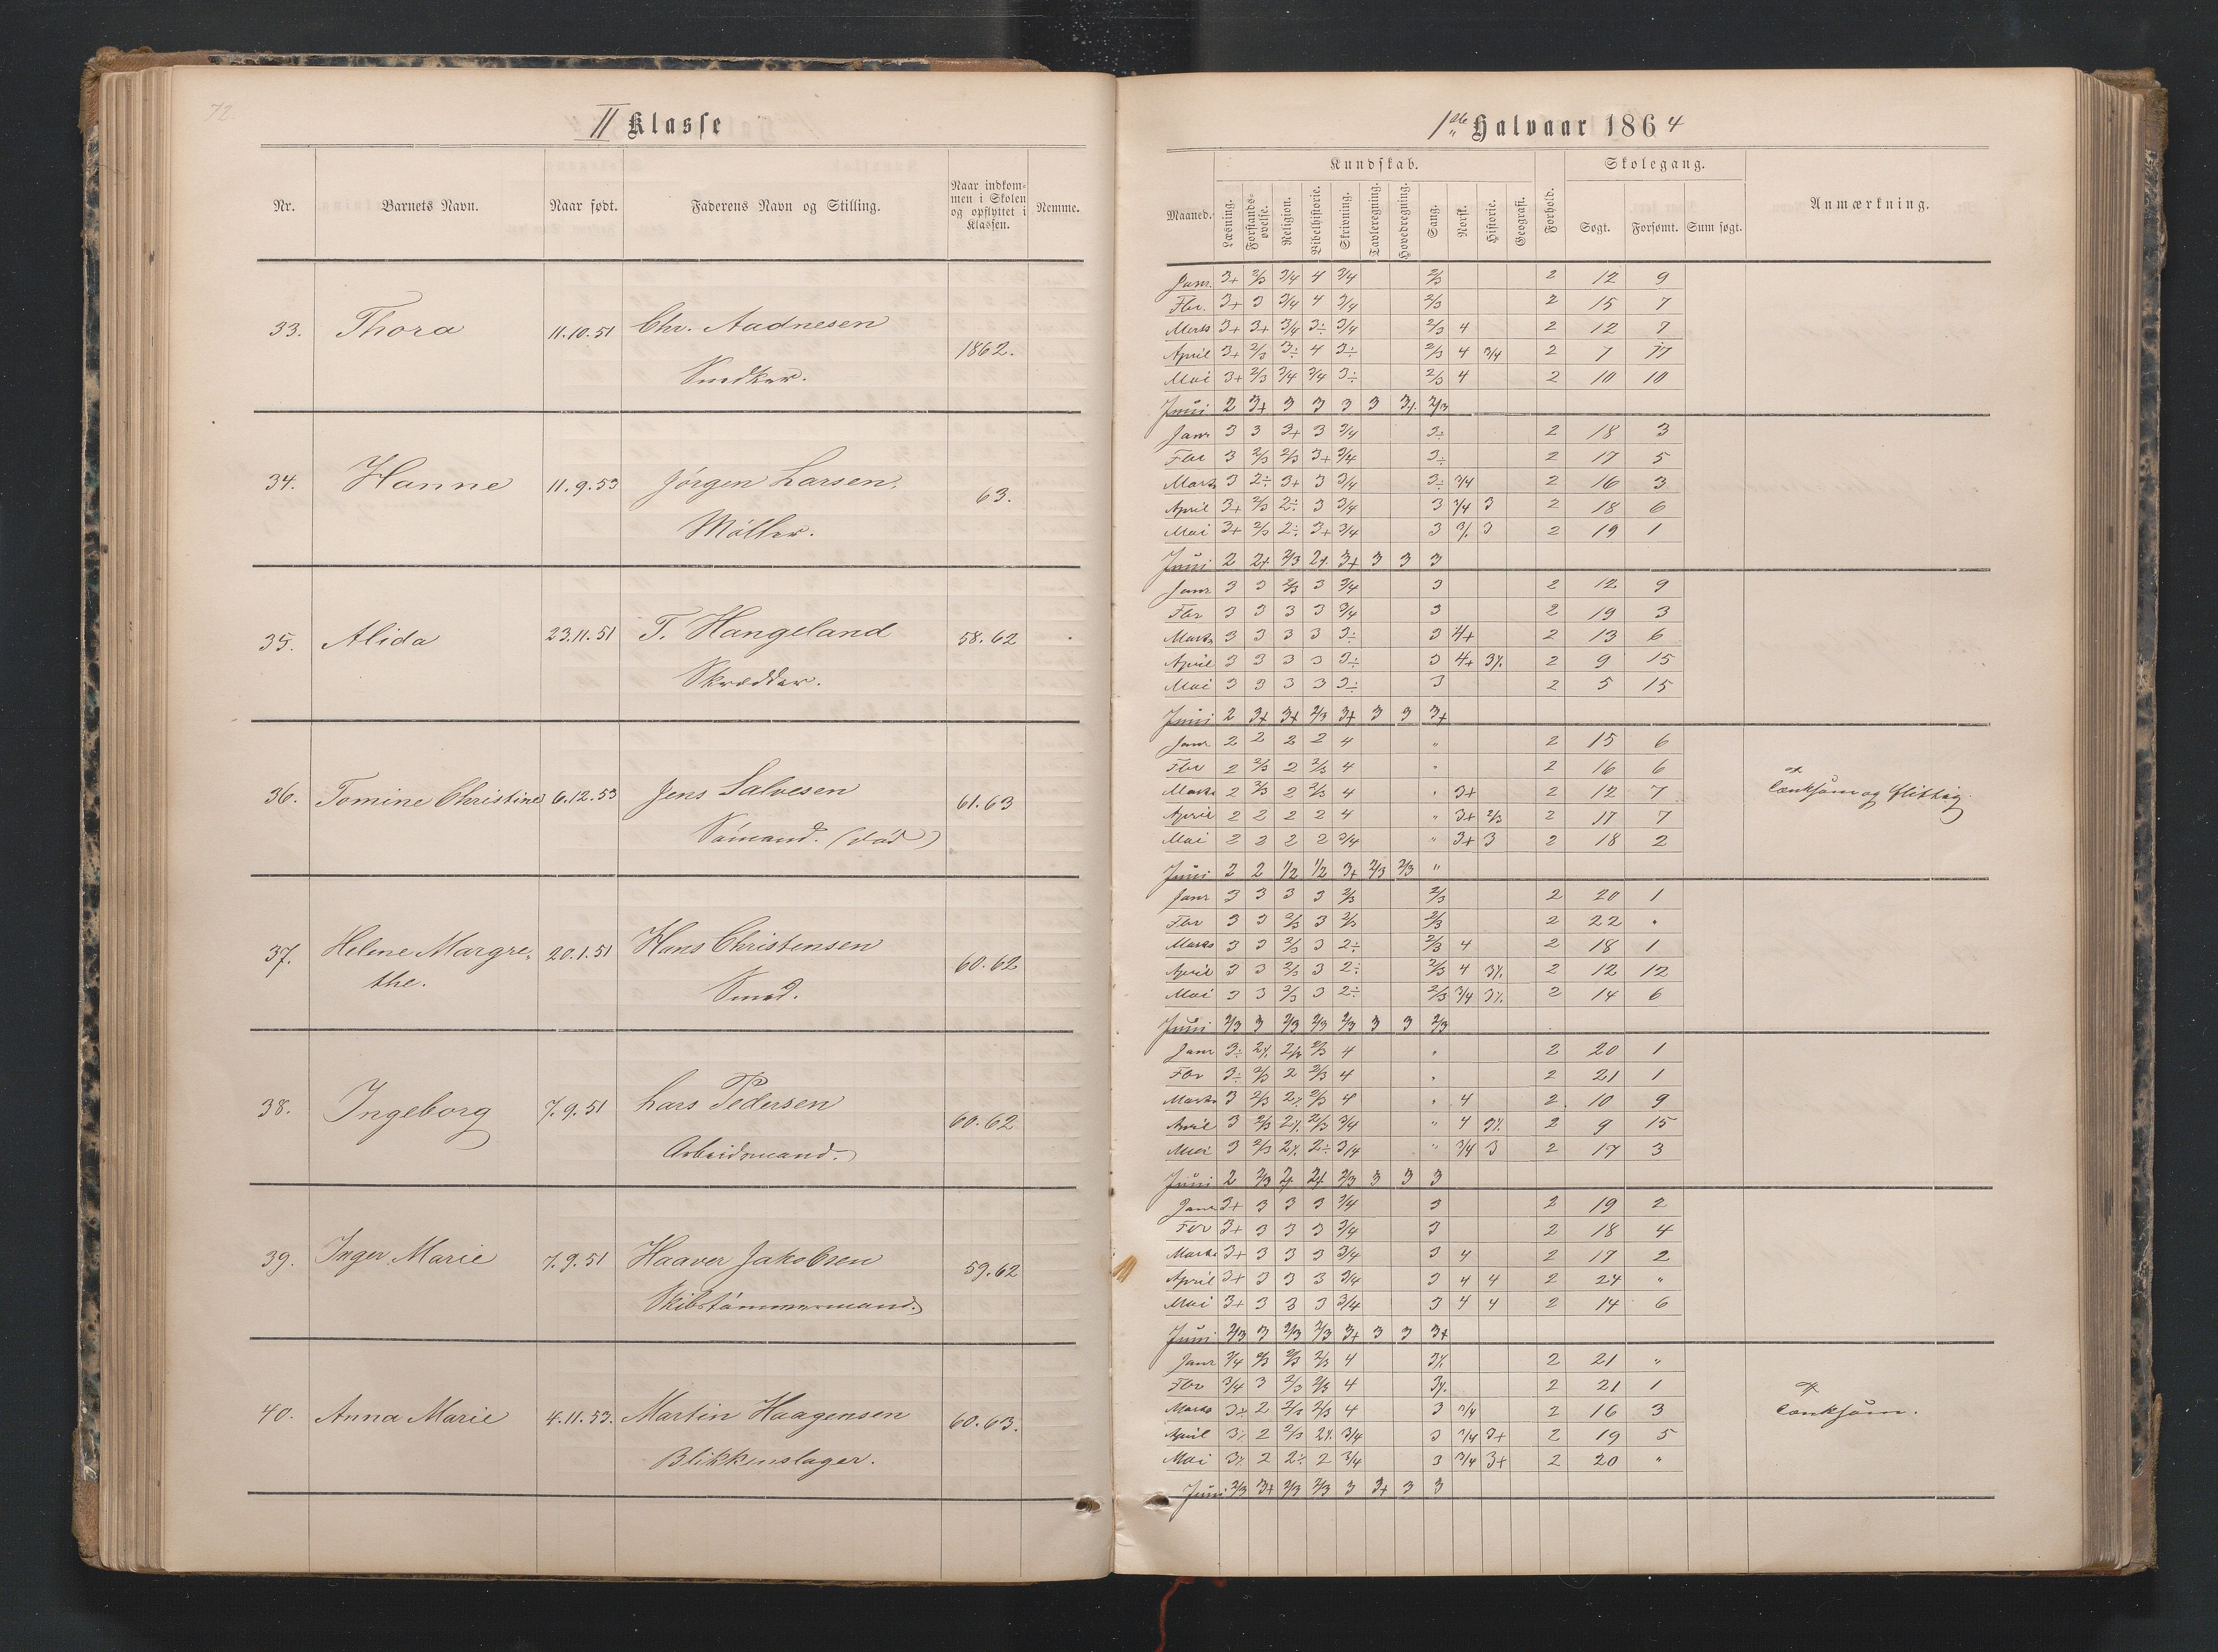 72.
II Klasse
Nr. Barnets Navn. Naar født. Faderens Navn og Stilling. Naar indkommen i Skolen og opflyttet i Klassen. Nemme.
33. Thora 11.10.51 Chr. Aadnesen 1862.
Snedker.
34. Hanne 11.9.53 Jørgen Larsen, 63.
Møller.
35. Alida 23.11.51 T. Hangeland 58.62
Skrædder.
36. Tomine Christine 6.12.53 Jens Salvesen 61.63
Sømand. (død)
37. Helene Margre- 20.1.51 Hans Christensen 60.62
the. Smed.
38. Ingeborg 7.9.51 Lars Pedersen 60.62
Arbeidsmand.
39. Inger Marie 7.9.51 Haaver Jakobsen 59.62
Skibstømmermand.
40. Anna Marie 4.11.53. Martin Haagensen 60.63.
Blikkenslager.
1ste Halvaar 1864
Kundskab. Skolegang.
Maaned. Læsning. Forstands-øvelse. Religion. Bibelhistorie. Skrivning. Tavleregning. Hovedregning. Sang. Norsk. Historie. Geografi. Forhold. Søgt. Forsømt. Sum søgt. Anmærkning.
Janr. 3+ 2/3 3/4 4 3/4 2/3 2 12 9
Fbr. 3+ 3 3/4 4 3/4 2/3 2 15 7
Marts 3+ 3+ 3/4 3÷ 3/4 2/3 4 2 12 7
April 3+ 2/3 3÷ 4 3÷ 2/3 4 3/4 2 7 17
Mai 3+ 2/3 3/4 3/4 3÷ 2/3 4 2 10 10
Juni 2 3+ 3 3 3 3 3% 2/3
Janr 3 3 3+ 3 3/4 3÷ 2 18 3
Fbr 3 2/3 2/3 3+ 3/4 3÷ 2 17 5
Marts 3 2÷ 3+ 3 3/4 3÷ 3/4 2 16 3
April 3+ 2/3 2÷ 3 3/4 3 3/4 3 2 18 6
Mai 3+ 2/3 2÷ 3+ 3/4 3 3% 3 2 19 1
Juni 2 2+ 2/3 2% 3+ 3 3 3
Janr 3 3 2/3 3 3/4 3 2 12 9
Fbr 3 3 3 3 3/4 3 2 19 3
Marts 3 3 3 3 3÷ 3 4+ 2 13 6
April 3 3 3 3 3÷ 3 4+ 3% 2 9 15
Mai 3 3 3 3 3÷ 3 2 5 15
Juni 2 3+ 3+ 2/3 3+ 3 3 3+
Janr 2 2 2 2 4 " 2 15 6
Fbr 2 2/3 2 2/3 4 " 2 16 6
Marts 2 2/3 2 2/3 4 " 3+ 2 12 7 Tænksom og flittig.
April 2 2 2 2 4 " 3+ 2/3 2 17 7
Mai 2 2 2 2 3/4 " 3+ 3 2 18 2
Juni 2 2 1/2 1/2 3+ 2/3 2/3 "
Janr 3 3 3 3 2/3 2/3 2 20 1
Fbr 3 3 2/3 3 2/3 2/3 2 22 "
Marts 3 3 2/3 3 2÷ 2/3 4 2 18 1
April 3 3 2/3 3 2÷ 2/3 4 3% 2 12 12
Mai 3 3 2/3 3 2÷ 2/3 3/4 3% 2 14 6
Juni 2/3 3 2/3 2/3 2/3 3 3 2/3
Janr 3÷ 2% 2/3 2/3 4 " 2 20 1
Fbr 3÷ 2/3 2 2/3 4 " 2 21 1
Marts 3 2/3 2% 2/3 4 " 4 2 10 9
April 3 2/3 2% 2/3 3/4 " 4 3% 2 9 15
Mai 3 2/3 2% 2÷ 3/4 " 3/4 3 2 17 3
Juni 2 2/3 2+ 2+ 2/3 3 3 3
Janr 3+ 3 3 3 3/4 3 2 19 2
Fbr 3+ 3 3 3 3/4 3 2 18 4
Marts 3+ 3 3 3 3/4 3 4 2 17 2
April 3+ 3 3 3 3/4 3 4 4 2 24 "
Mai 3+ 3 3 3 3/4 3 4 4 2 14 6
Juni 2/3 3 2/3 2/3 3+ 3 3 3+
Janr 3/4 2/3 2/3 2/3 4 3% 2 21 "
Fbr 3/4 3 2/3 2/3 4 3% 2 21 1
Marts 3÷ 2 2/3 2/3 4 3 3/4 2 16 3 Tænksom.
April 3% 2 2/3 2% 3/4 3 3/4 3+ 2 19 5
Mai 3% 2 2÷ 2 3/4 3 3/4 3+ 2 20 "
Juni 2/3 3+ 2/3 2/3 3 3+ 3 3